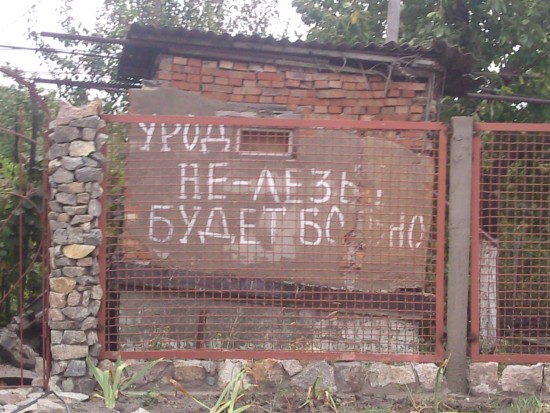 УРОД
НЕ-ЛЕЗЬ,
БУДЕТ БОЛЬНО